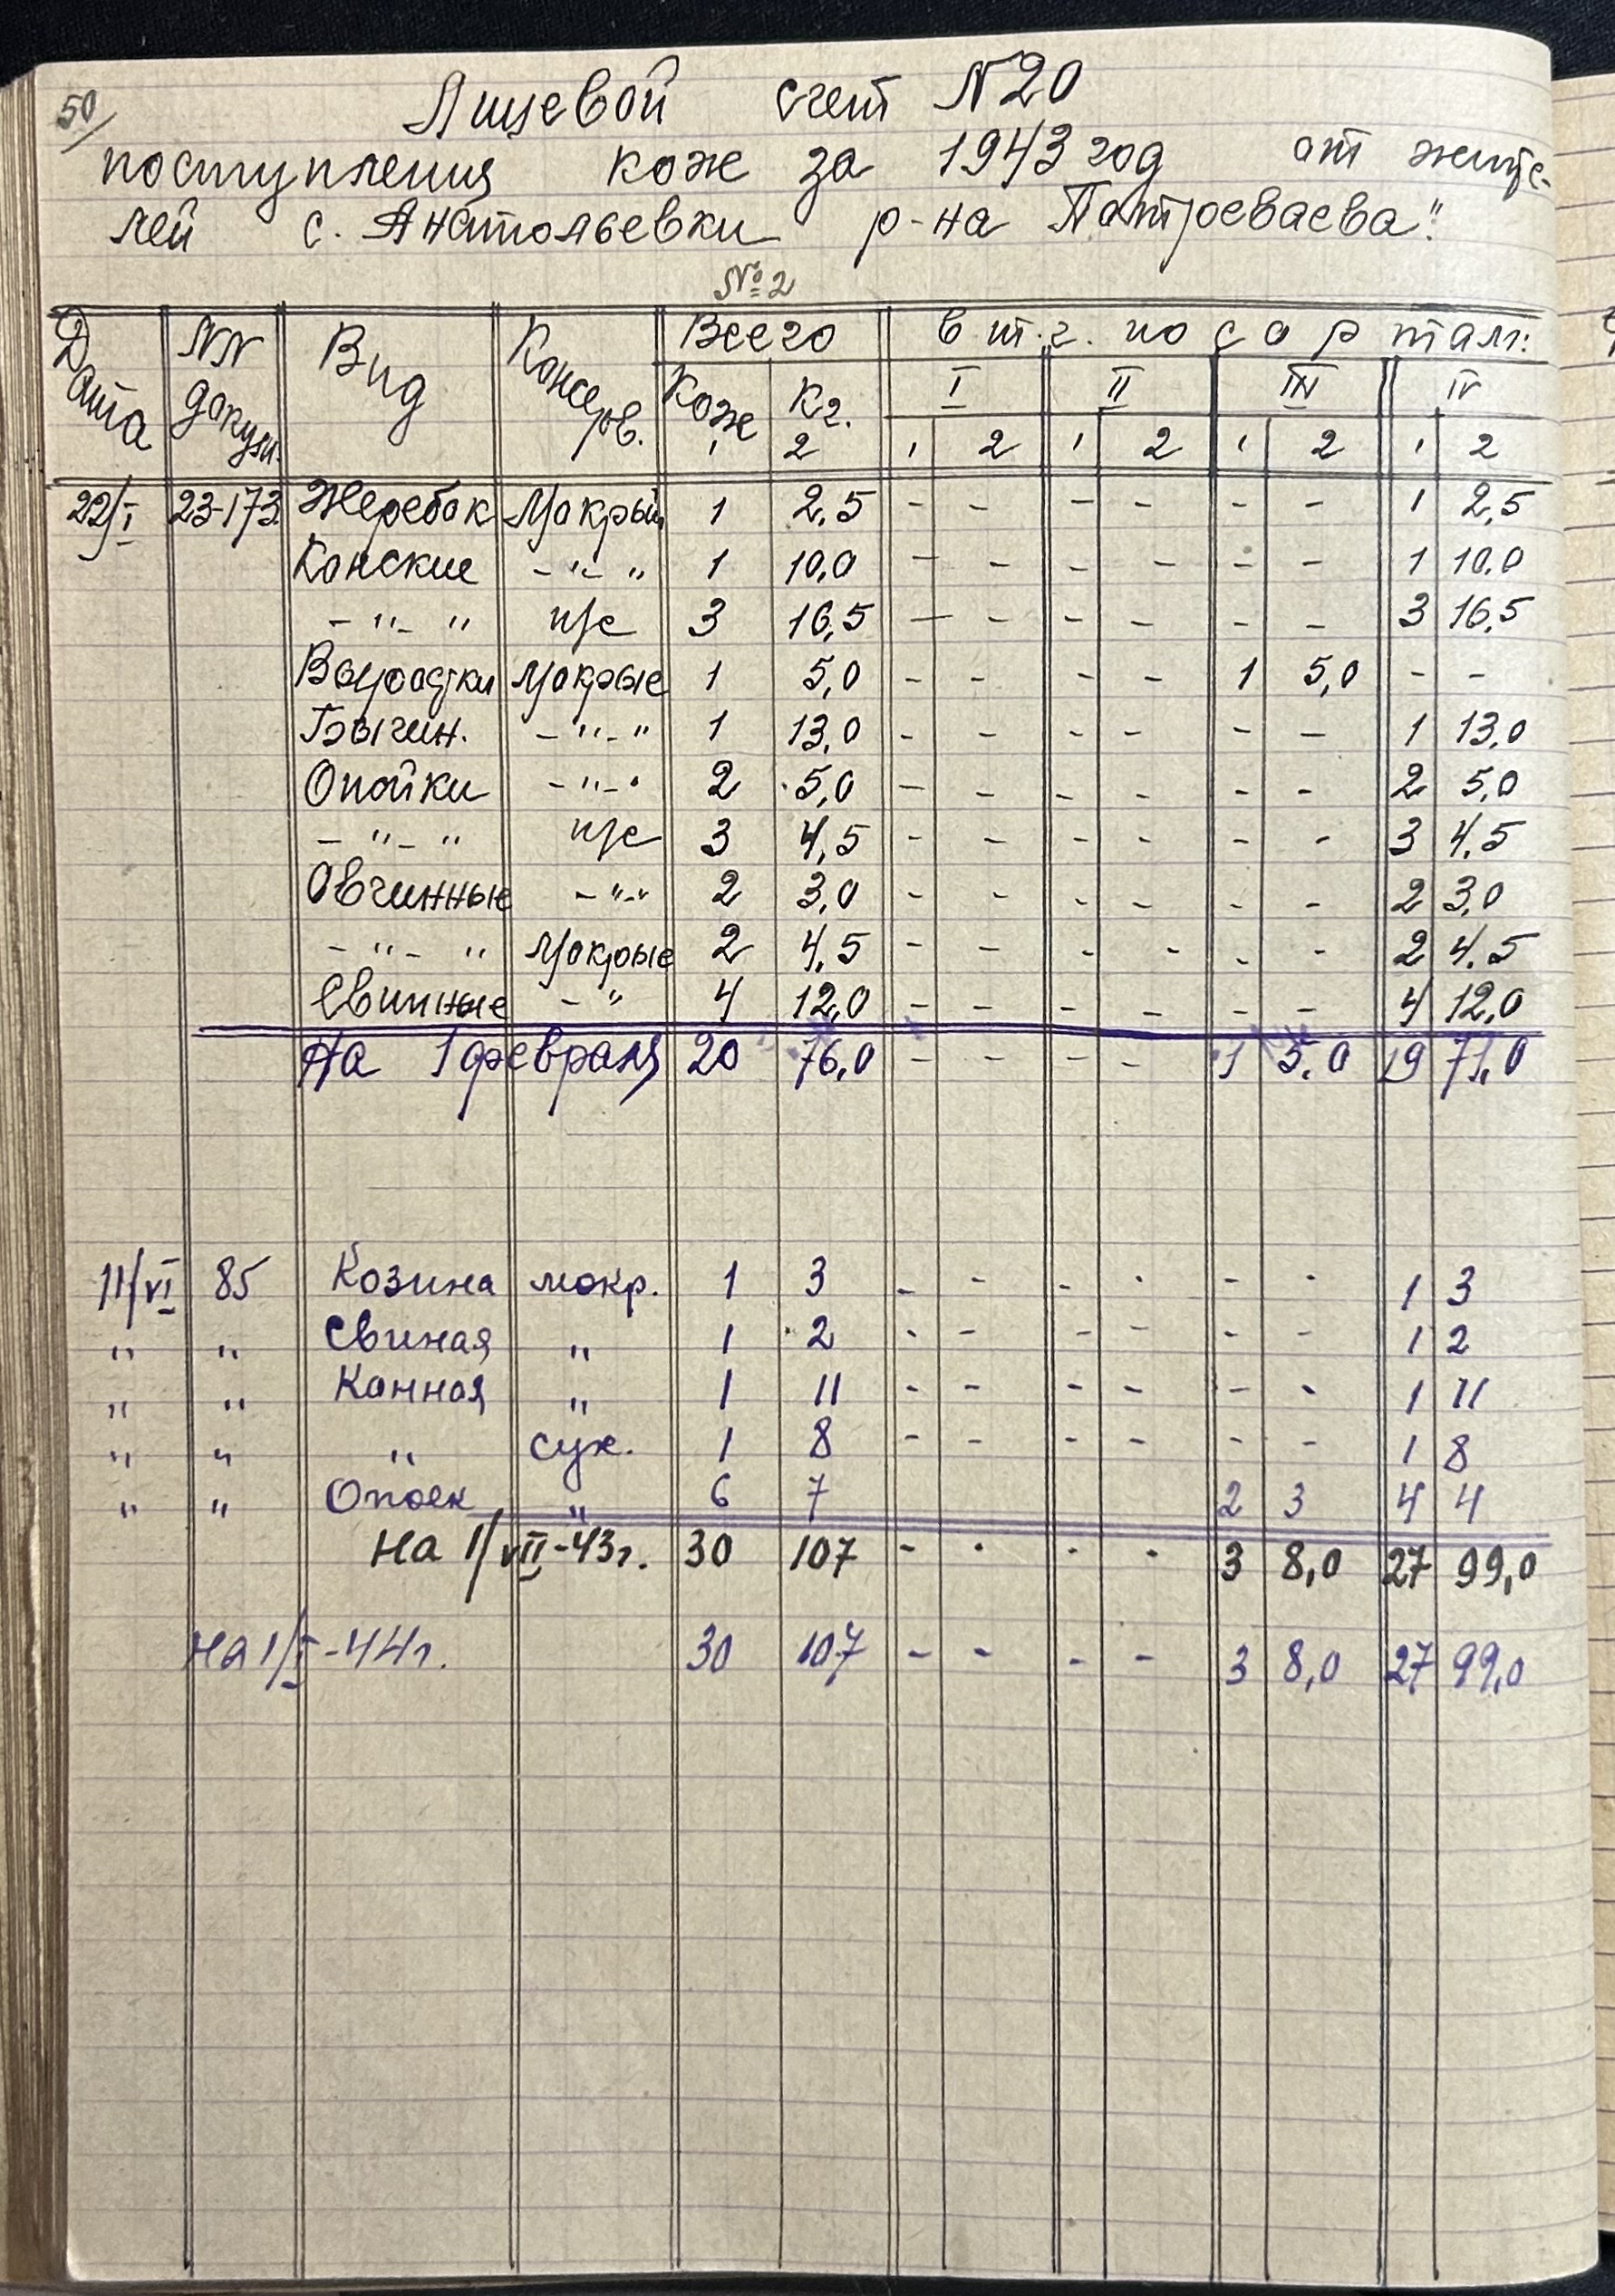 50/
Лицевой счет N20
поступления кож за 1943 год от жите-
лей с. Анатольевки р-на Патреваева"
№2
Дата NN докум. Вид Консерв. Всего в т.ч. по сортам:
Кож Кг. I II III IV
1 2 1 2 1 2 1 2 1 2
22/I 23-173 Жеребок Мокрый 1 2,5 - - - - - - 1 2,5
Конские -"-" 1 10,0 - - - - - - 1 10,0
-"-" п/с 3 16,5 - - - - - - 3 16,5
Выростки Мокрые 1 5,0 - - - - 1 5,0 - -
Бычин. -"-" 1 13,0 - - - - - - 1 13,0
Опойки -"-" 2 5,0 - - - - - - 2 5,0
-"-" п/с 3 4,5 - - - - - - 3 4,5
Овчинные -"-" 2 3,0 - - - - - - 2 3,0
-"-" Мокрые 2 4,5 - - - - - - 2 4,5
Свинные -" 4 12,0 - - - - - - 4 12,0
На 1 февраля 20 76,0 - - - - 1 5,0 19 71,0
11/VI 85 Козина мокр. 1 3 - - - - - - 1 3
" " Свиная " 1 2 - - - - - - 1 2
" " Конная " 1 11 - - - - - - 1 11
" " " сух. 1 8 - - - - - - 1 8
" " Опоек " 6 7 2 3 4 4
на 1/VII-43г. 30 107 - - - - 3 8,0 27 99,0
на 1/I-44г. 30 107 - - - - 3 8,0 27 99,0